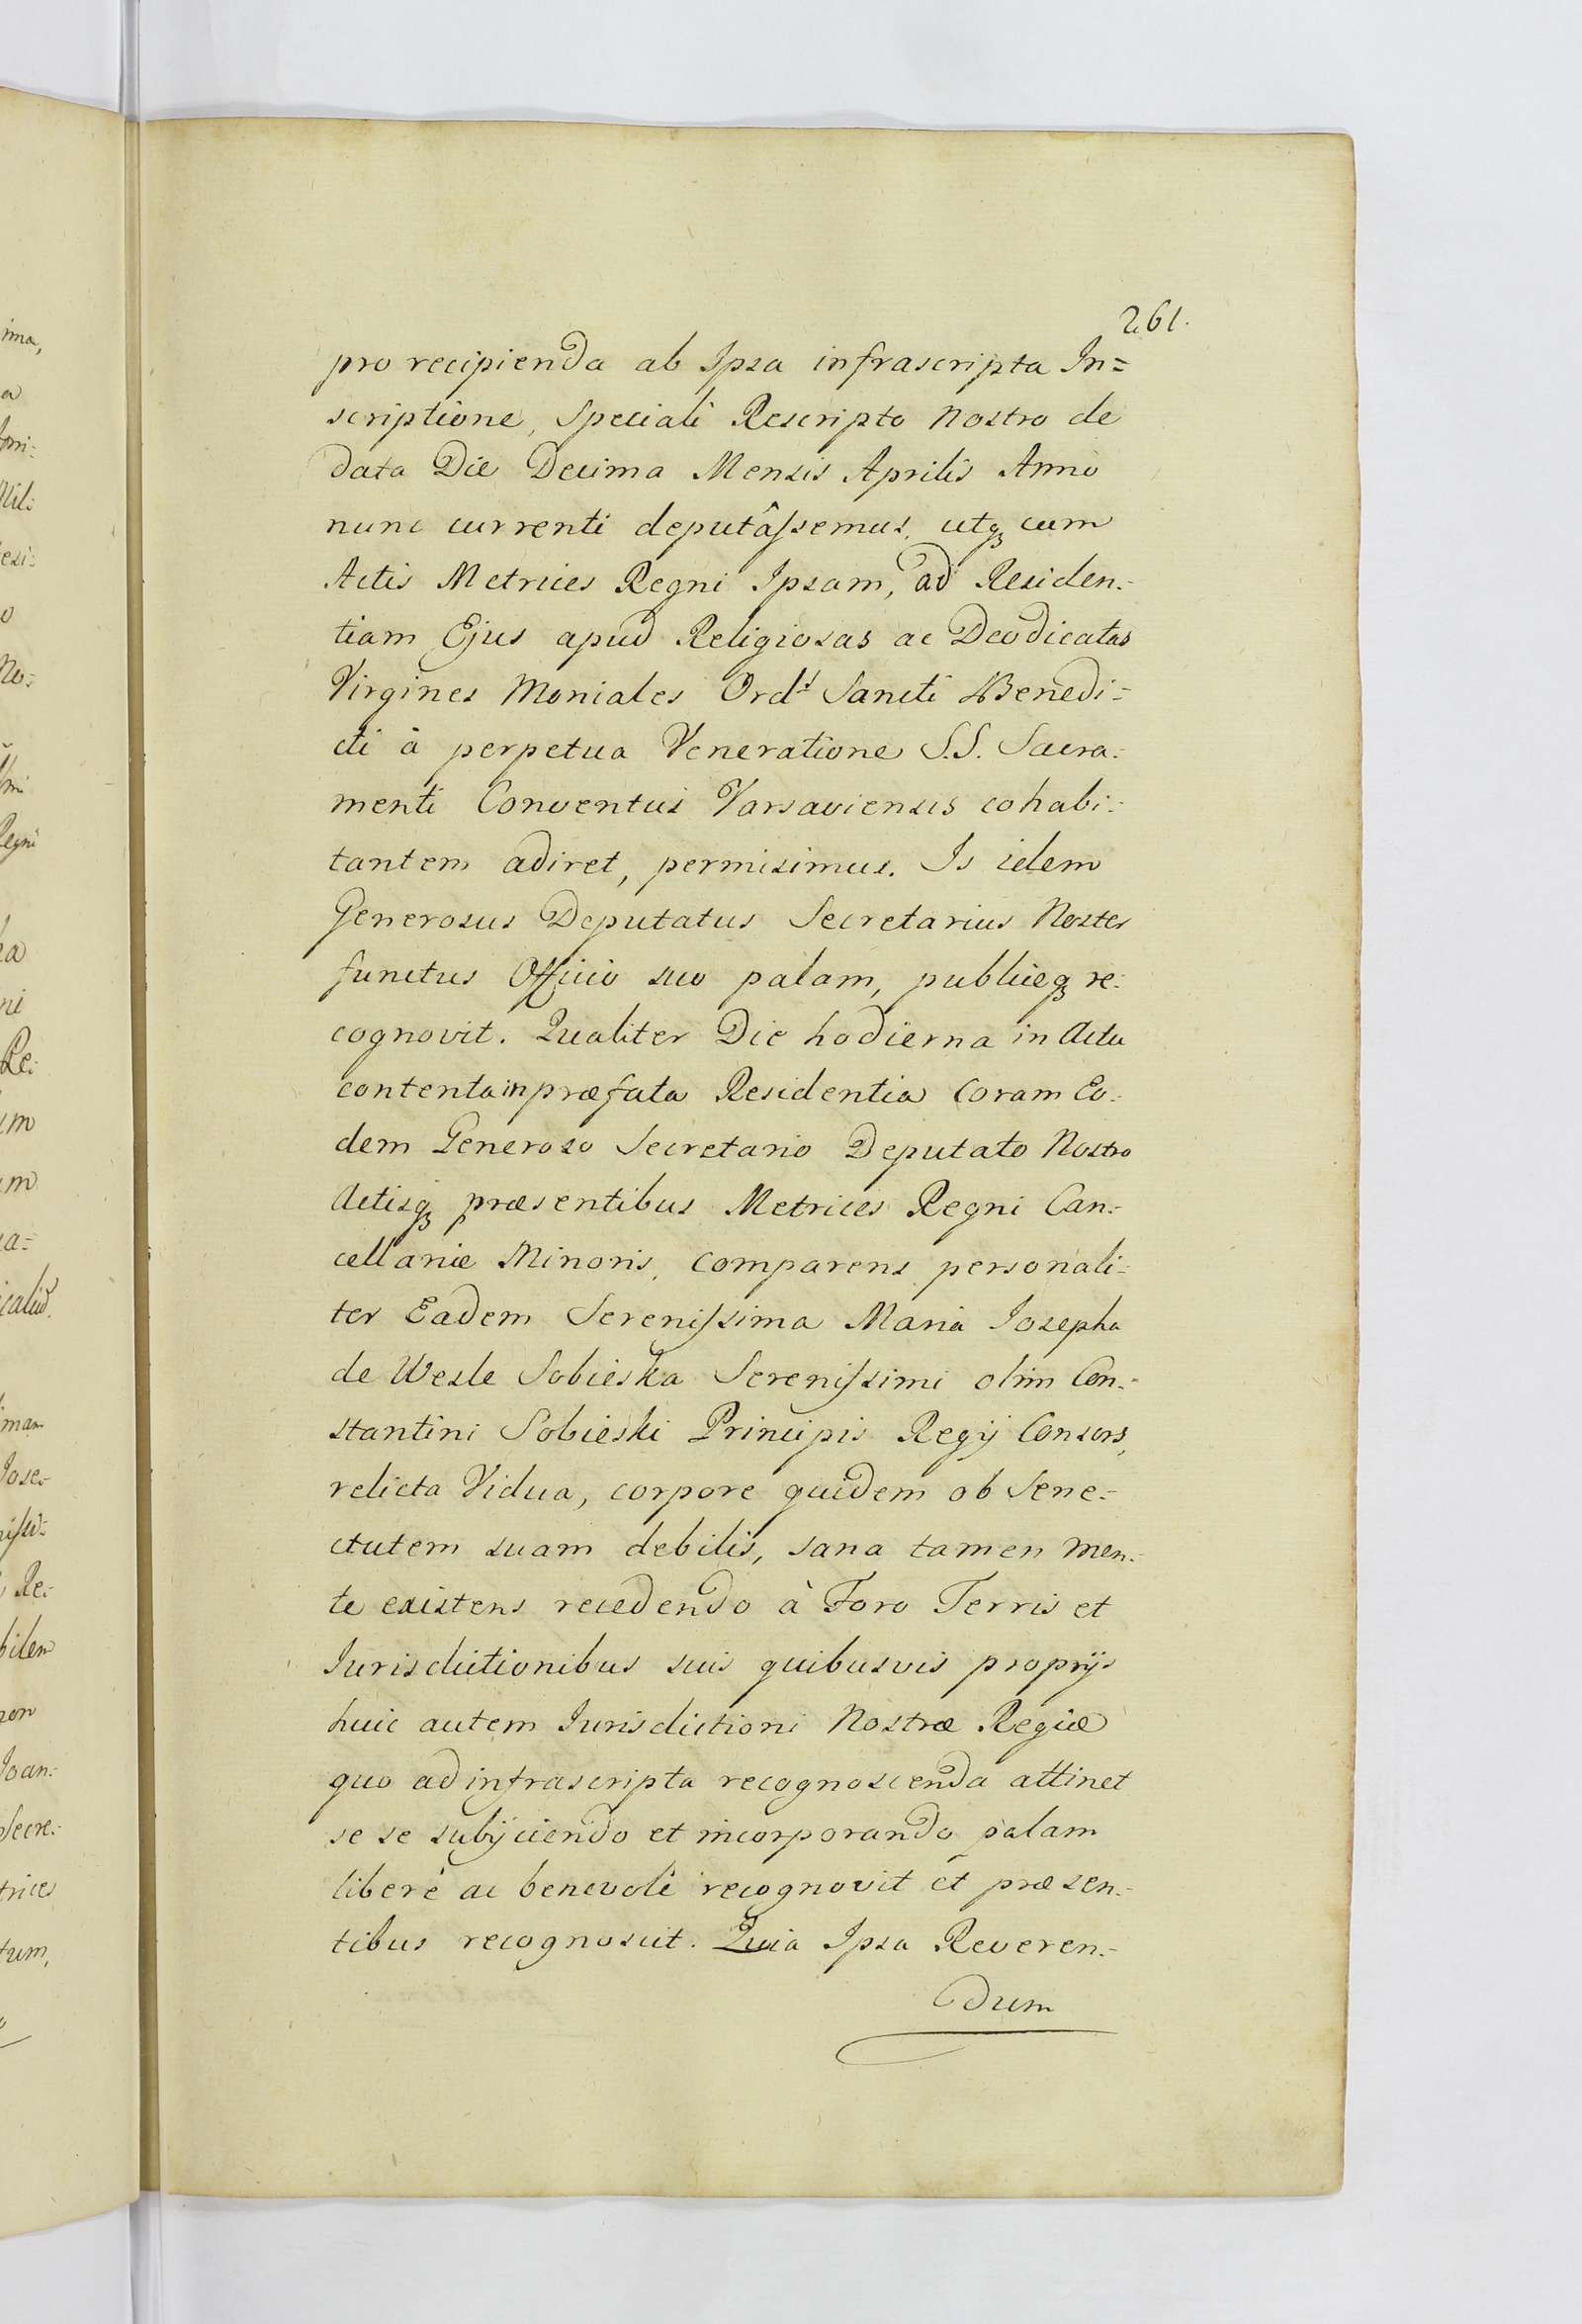 261.
pro recipienda ab Ipsa infrascripta In=
scriptione, Speciali Rescripto Nostro de
data Die Decima Mensis Aprilis Anno
nunc currenti deputâssemus, utq3 cum
Actis Metrices Regni Ipsam, ad Residen=
tiam Ejus apud Religiosas ac Deodicatas
Virgines Moniales Ord.s Sancti Benedi=
cti à perpetua Veneratione S.S. Sacra=
menti Conventus Varsaviensis cohabi=
tantem adiret, permisimus. Is idem
Generosus Deputatus Secretarius Noster
functus Officio suo palam, publiceq3 re=
cognovit. Qualiter Die hodierna in Actu
contenta in præfata Residentia Coram Eo=
dem Generoso Secretario Deputato Nostro
Actisq3 præsentibus Metrices Regni Can=
cellariæ Minoris, comparens personali=
ter Eadem Serenissima Maria Iosepha
de Wesle Sobieska Serenissimi olim Con=
stantini Sobieski Principis Regij Consors,
relicta Vidua, corpore quidem ob Sene=
ctutem suam debilis, sana tamen men=
te existens recedendo à Foro Terris et
Iurisdictionibus suis quibusvis proprijs
huic autem Iurisdictioni Nostræ Regiæ
quo ad infrascripta recognoscenda attinet
se se subijciendo et incorporando palam
liberè ac benevolè recognovit et præsen=
tibus recognoscit. Quia Ipsa Reveren=
dum